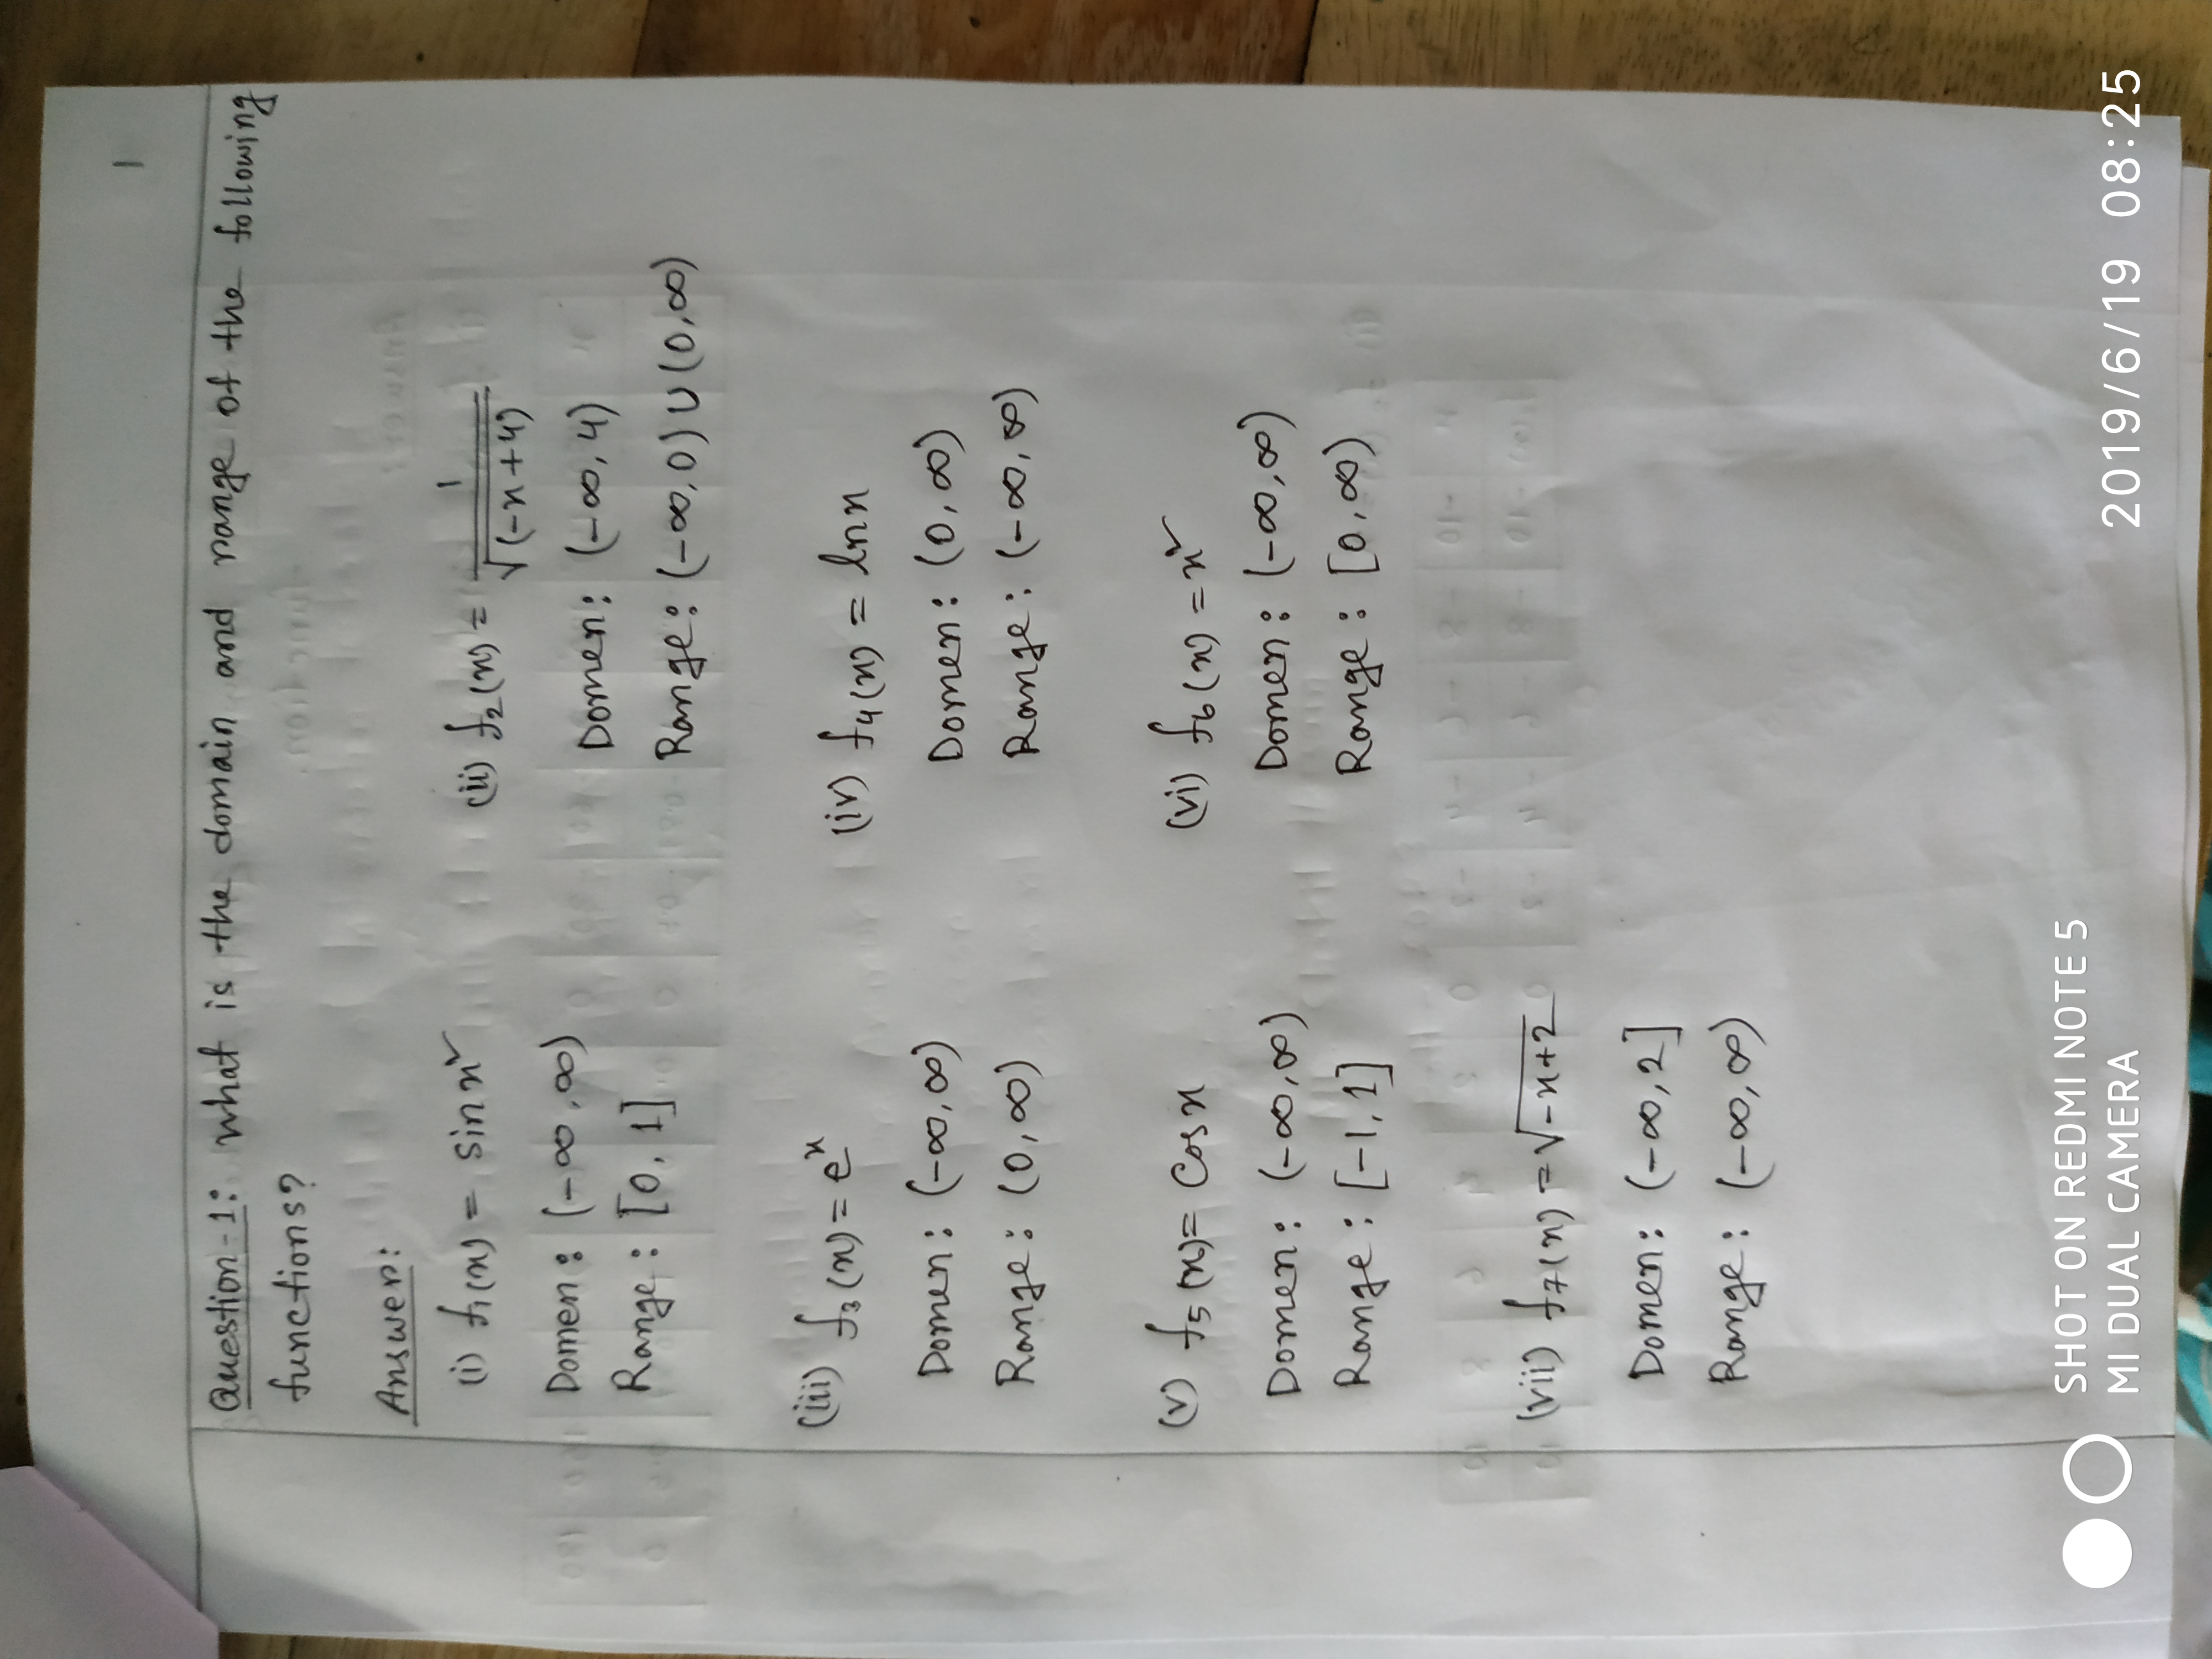 1
Question-1: What is the domain and range of the following
functions?
Answer:
(i) f₁(x) = sin x²
Domen: (-∞, ∞)
Range: [0, 1]
(ii) f₂(x) = 1/√(-x+4)
Domen: (-∞, 4)
Range: (-∞, 0) ∪ (0, ∞)
(iii) f₃(x) = eˣ
Domen: (-∞, ∞)
Range: (0, ∞)
(iv) f₄(x) = ln x
Domen: (0, ∞)
Range: (-∞, ∞)
(v) f₅(x) = Cos x
Domen: (-∞, ∞)
Range: [-1, 1]
(vi) f₆(x) = x²
Domen: (-∞, ∞)
Range: [0, ∞)
(vii) f₇(x) = √-x+2
Domen: (-∞, 2]
Range: (-∞, ∞)
SHOT ON REDMI NOTE 5
MI DUAL CAMERA
2019/6/19 08:25